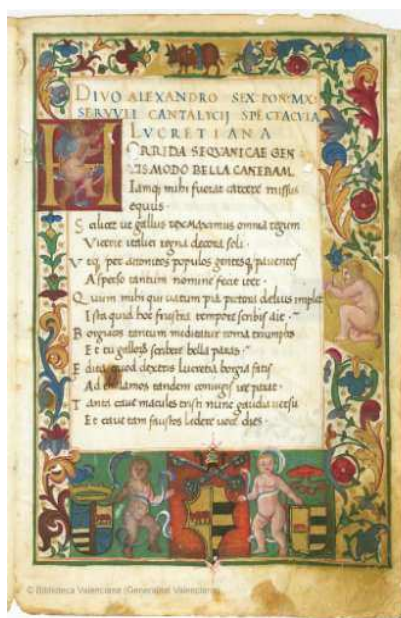 DIVO ALEXANDRO SEX PON MX
SERVVLI CANTALYCII SPECTACVLA
LVCRETIANA
HORRIDA SEQVANICAE GEN
TIS MODO BELLA CANEBAM
Iamq mihi fuerat carcere missus
equus
Scilicet ut gallus rex maximus omnia regum
Vicerit italici regna decora soli
Vtq per attonitos populos gentesq pauentes
Asperso tantum nomine fecit iter
Quum mihi qui uatum pia pectora delius implet
Ista quid hoc frustra tempore scribis ait
Borgiacos tantum meditatur roma triumphos
Et tu gallorum scribere bella paras
Edita quod dextris lucretia borgia fatis
Ad thalamos tandem coniugis ire parat
Tanta caue macules tristi nunc gaudia uersu
Et caue tam faustos ledere uoce dies
© Biblioteca Valenciana (Generalitat Valenciana)